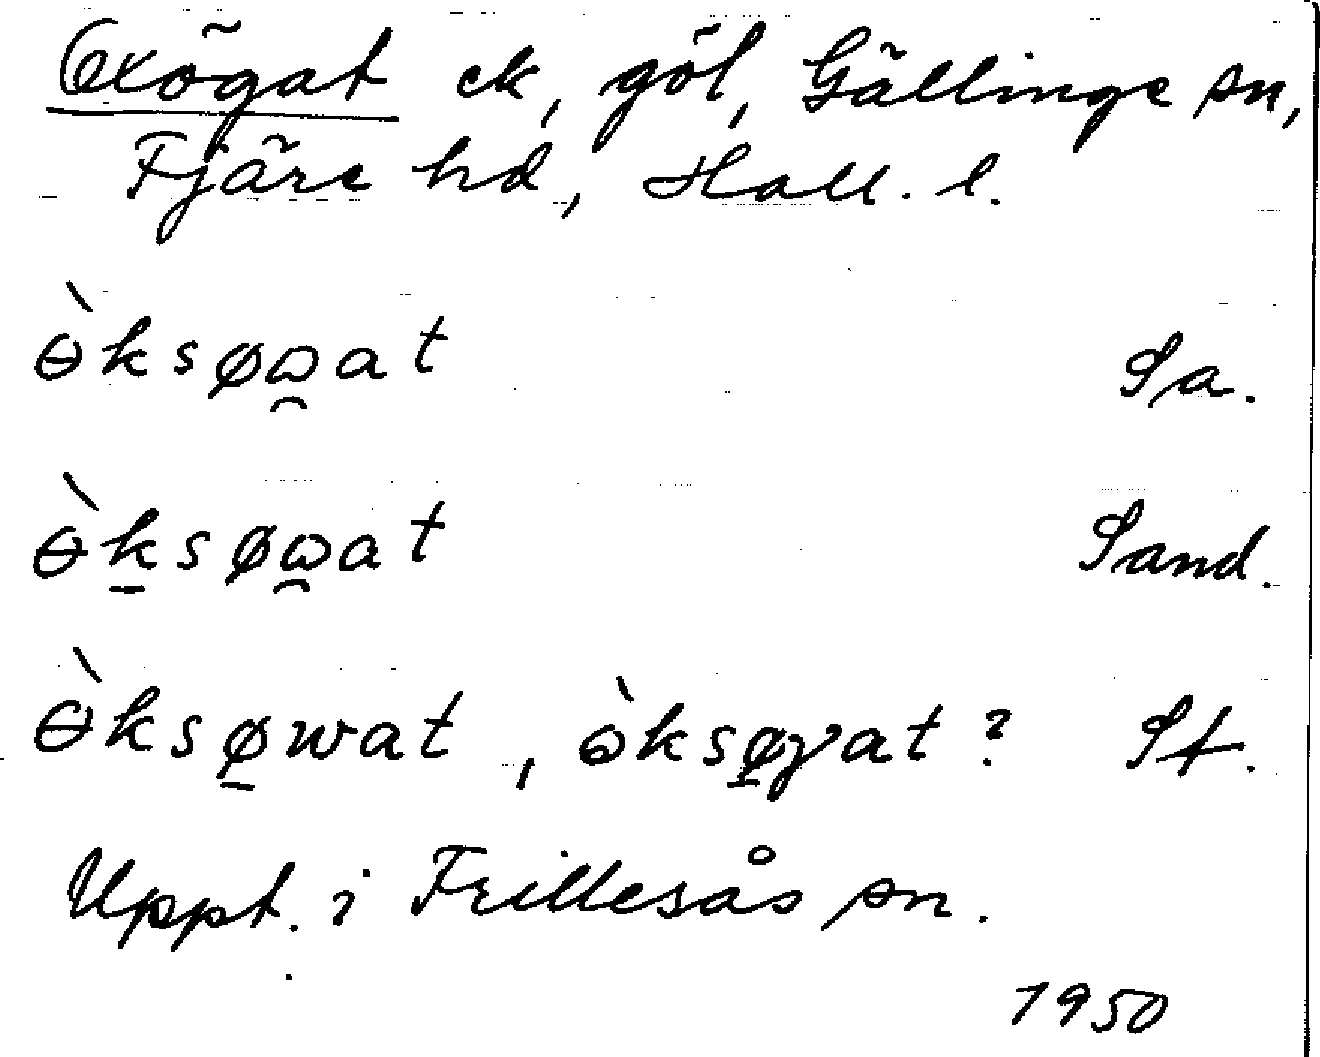 Oxögat ek, göl, Gällinge sn,
Fjäre hd, Hall. l.
ɵ̀ksøϖ̯at Sa.
ɵ̀ḵsøϖ̯at Sand.
ɵ̀ksø̱wat, òksø̱γat? St.
Uppt. i Frillesås sn.
1950